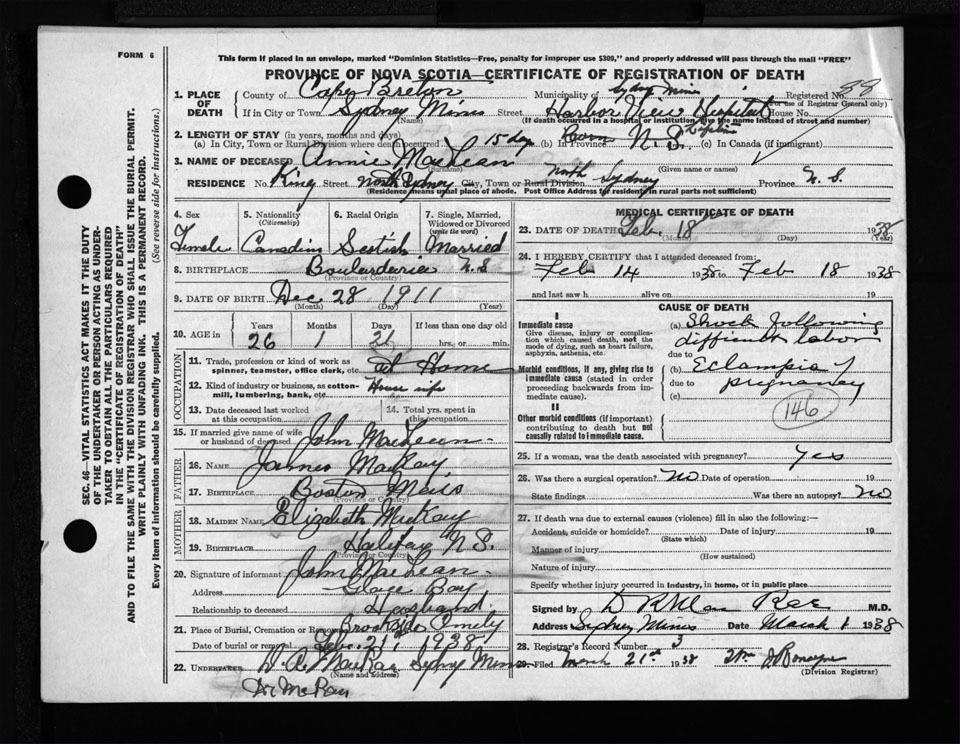 FORM 6
This form if placed in an envelope, marked "Dominion Statistics—Free, penalty for improper use $300," and properly addressed will pass through the mail "FREE"
PROVINCE OF NOVA SCOTIA—CERTIFICATE OF REGISTRATION OF DEATH
1. PLACE OF DEATH County of Cape Breton Municipality of Sydney Mines Registered No.
(For use of Registrar General only)
If in City or Town Sydney Mines Street Harbor View Hospital House No.
(Name) (If death occurred in a hospital or institution, give the name instead of street and number)
2. LENGTH OF STAY (in years, months and days)
(a) In City, Town or Rural Division where death occurred 15 days (b) In Province Born N.S. (c) In Canada (if immigrant)
3. NAME OF DECEASED Annie MacLean
(Surname) (Given name or names)
RESIDENCE No. King Street North Sydney City, Town or Rural Division North Sydney Province N. S.
(Residence means usual place of abode. Post Office Address for residents in rural parts not sufficient)
4. Sex Female
5. Nationality (Citizenship) Canadian
6. Racial Origin Scotish
7. Single, Married, Widowed or Divorced (write the word) Married
8. BIRTHPLACE Boularderie N.S
(Province or Country)
9. DATE OF BIRTH Dec. 28 1911
(Month) (Day) (Year)
10. AGE in Years 26 Months 1 Days 21 If less than one day old hrs. or min.
OCCUPATION
11. Trade, profession or kind of work as spinner, teamster, office clerk, etc. at Home
12. Kind of industry or business, as cotton-mill, lumbering, bank, etc. House wife
13. Date deceased last worked at this occupation
14. Total yrs. spent in this occupation
15. If married give name of wife or husband of deceased John MacLean
FATHER
16. Name James MacKay
17. Birthplace Boston Mass
(Province or Country)
MOTHER
18. Maiden Name Elizabeth McKay
19. Birthplace Halifax N.S.
(Province or Country)
20. Signature of informant John MacLean
Address Glace Bay
Relationship to deceased Husband
21. Place of Burial, Cremation or Removal Brookside
Date of burial or removal Feb. 21st 1938
22. UNDERTAKER Sydney Mines
(Name and address)
Dr McRae
MEDICAL CERTIFICATE OF DEATH
23. DATE OF DEATH Feb. 18 1938
(Month) (Day) (Year)
24. I HEREBY CERTIFY that I attended deceased from:
Feb 14 1938 to Feb 18 1938
and last saw h alive on 19
CAUSE OF DEATH
I
Immediate cause
Give disease, injury or complication which caused death, not the mode of dying, such as heart failure, asphyxia, asthenia, etc.
(a) Shock following difficult labor
due to
Morbid conditions, if any, giving rise to immediate cause (stated in order proceeding backwards from immediate cause).
(b) Eclampsia
due to pregnancy
(c)
146
II
Other morbid conditions (if important) contributing to death but not causally related to immediate cause.
25. If a woman, was the death associated with pregnancy? Yes
26. Was there a surgical operation? No Date of operation 19
State findings Was there an autopsy? No
27. If death was due to external causes (violence) fill in also the following:—
Accident, suicide or homicide? Date of injury 19
(State which)
Manner of injury
(How sustained)
Nature of injury
Specify whether injury occurred in industry, in home, or in public place
Signed by M.D.
Address Sydney Mines Date March 1 1938
28. Registrar's Record Number 3
29. Filed March 21st 1938
(Division Registrar)
SEC. 46—VITAL STATISTICS ACT MAKES IT THE DUTY
OF THE UNDERTAKER OR PERSON ACTING AS UNDER-
TAKER TO OBTAIN ALL THE PARTICULARS REQUIRED
IN THE "CERTIFICATE OF REGISTRATION OF DEATH"
AND TO FILE THE SAME WITH THE DIVISION REGISTRAR WHO SHALL ISSUE THE BURIAL PERMIT.
WRITE PLAINLY WITH UNFADING INK. THIS IS A PERMANENT RECORD.
Every item of information should be carefully supplied. (See reverse side for instructions.)